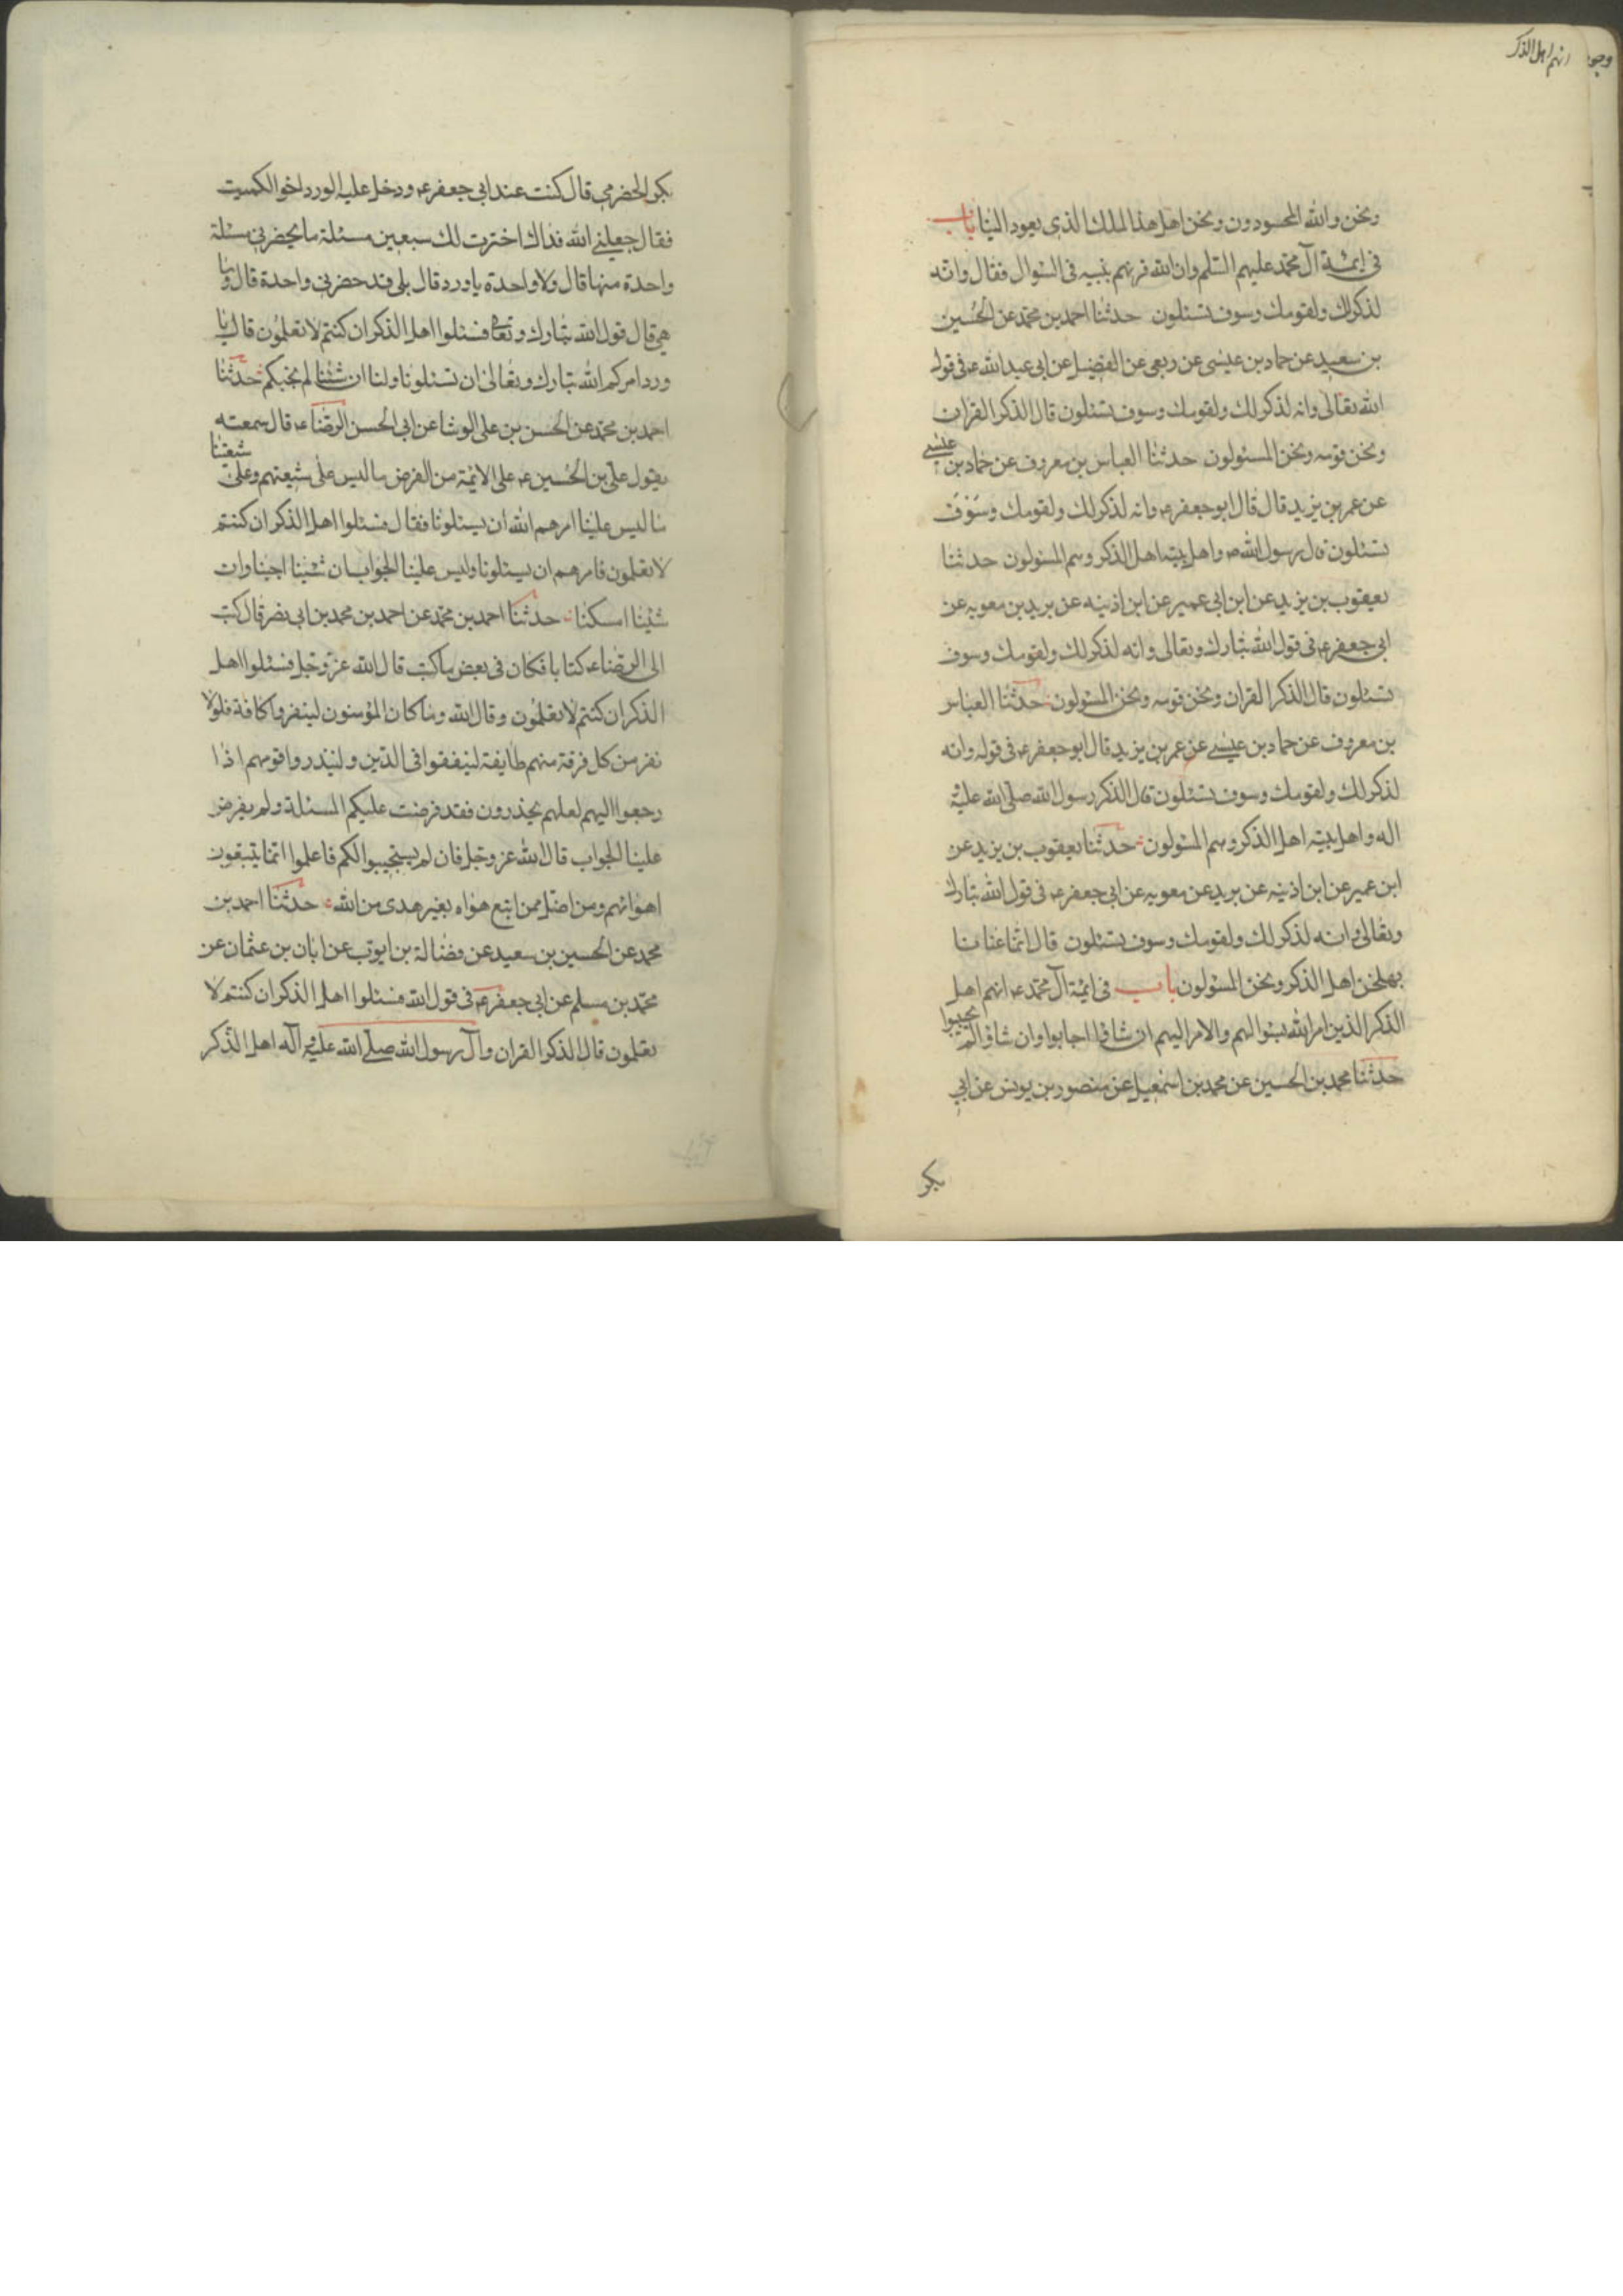 انهم اهل الذكر
ونحن والله المحسودون ونحن اهل هذا الملك الذى يعود الينا باب
فى ائمة آل محمد عليهم السلم وان الله قرنهم بنبيه فى السؤال فقال وانه
لذكر لك ولقومك وسوف تسئلون حدثنا احمد بن محمد عن الحسين
بن سعيد عن حماد بن عيسى عن ربعى عن الفضيل عن ابى عبد الله ع فى قول
الله تعالى وانه لذكر لك ولقومك وسوف تسئلون قال الذكر القران
ونحن قومه ونحن المسئولون حدثنا العباس بن معروف عن حماد بن عيسى
عن عمر بن يزيد قال قال ابو جعفر ع وانه لذكر لك ولقومك وسوف
تسئلون قال رسول الله ص واهل بيته اهل الذكر وهم المسئولون حدثنا
يعقوب بن يزيد عن ابن ابى عمير عن ابن اذينه عن بريد بن معويه عن
ابى جعفر ع فى قول الله تبارك وتعالى وانه لذكر لك ولقومك وسوف
تسئلون قال الذكر القران ونحن قومه ونحن المسئولون حدثنا العباس
بن معروف عن حماد بن عيسى عن عمر بن يزيد قال ابو جعفر ع فى قوله وانه
لذكر لك ولقومك وسوف تسئلون قال الذكر رسول الله صلى الله عليه
اله واهل بيته اهل الذكر وهم المسئولون حدثنا يعقوب بن يزيد عن
ابن عمير عن ابن اذينه عن بريد عن معويه عن ابى جعفر ع فى قول الله تبارك
وتعالى وانه لذكر لك ولقومك وسوف تسئلون قال انما عنانا
بها نحن اهل الذكر ونحن المسئولون باب فى ائمة آل محمد ع انهم اهل
الذكر الذين امر الله بسؤالهم والامر اليهم ان شاؤا اجابوا وان شاؤا لم يجيبوا
حدثنا محمد بن الحسين عن محمد بن اسمعيل عن منصور بن يونس عن ابى
بكر
بكر الحضرمى قال كنت عند ابى جعفر ع ودخل عليه الورد اخو الكميت
فقال جعلنى الله فداك اخترت لك سبعين مسئلة ما يحضرنى مسئلة
واحدة منها قال ولا واحدة يا ورد قال بلى قد حضرنى واحدة قال وما
هى قال قول الله تبارك وتعالى فسئلوا اهل الذكر ان كنتم لا تعلمون قال يا
ورد امركم الله تبارك وتعالى ان تسئلونا ولنا ان شئنا لم نجبكم حدثنا
احمد بن محمد عن الحسن بن على الوشا عن ابى الحسن الرضا ع قال سمعته
يقول على بن الحسين ع على الائمة من الفرض ما ليس على شيعتهم وعلى شيعتنا
ما ليس علينا امرهم الله ان يسئلونا فقال فسئلوا اهل الذكر ان كنتم
لا تعلمون فامرهم ان يسئلونا وليس علينا الجواب ان شئنا اجبنا وان
شئنا امسكنا حدثنا احمد بن محمد عن احمد بن محمد بن ابى نصر قال كتب
الى الرضا ع كتابا فكان فى بعض ما كتب قال الله عز وجل فسئلوا اهل
الذكر ان كنتم لا تعلمون وقال الله وما كان المؤمنون لينفروا كافة فلولا
نفر من كل فرقة منهم طايفة ليتفقهوا فى الدين ولينذروا قومهم اذا
رجعوا اليهم لعلهم يحذرون فقد فرضت عليكم المسئلة ولم يفرض
علينا الجواب قال الله عز وجل فان لم يستجيبوا لكم فاعلموا انما يتبعون
اهوائهم ومن اضل ممن اتبع هواه بغير هدى من الله حدثنا احمد بن
محمد عن الحسين بن سعيد عن فضالة بن ايوب عن ابان بن عثمان عن
محمد بن مسلم عن ابى جعفر ع فى قول الله فسئلوا اهل الذكر ان كنتم لا
تعلمون قال الذكر القران وآل رسول الله صلى الله عليه وآله اهل الذكر